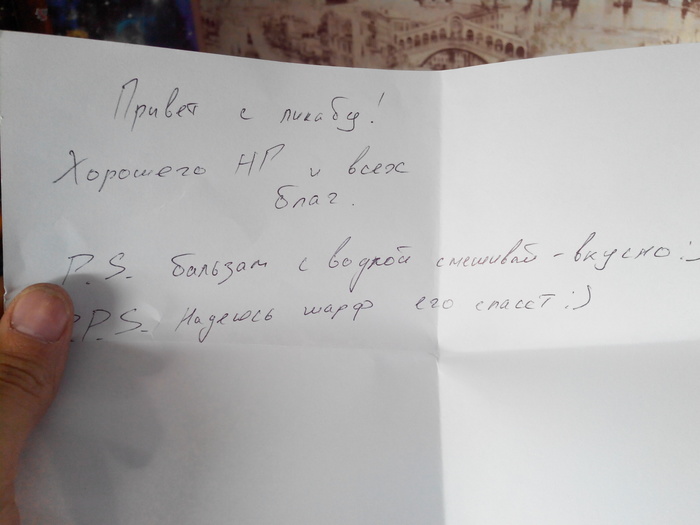 Привет с пикабу!
Хорошего НГ и всех
благ.
P.S. бальзам с водкой смешивай - вкусно :)
P.P.S. Надеюсь шарф его спасёт :)